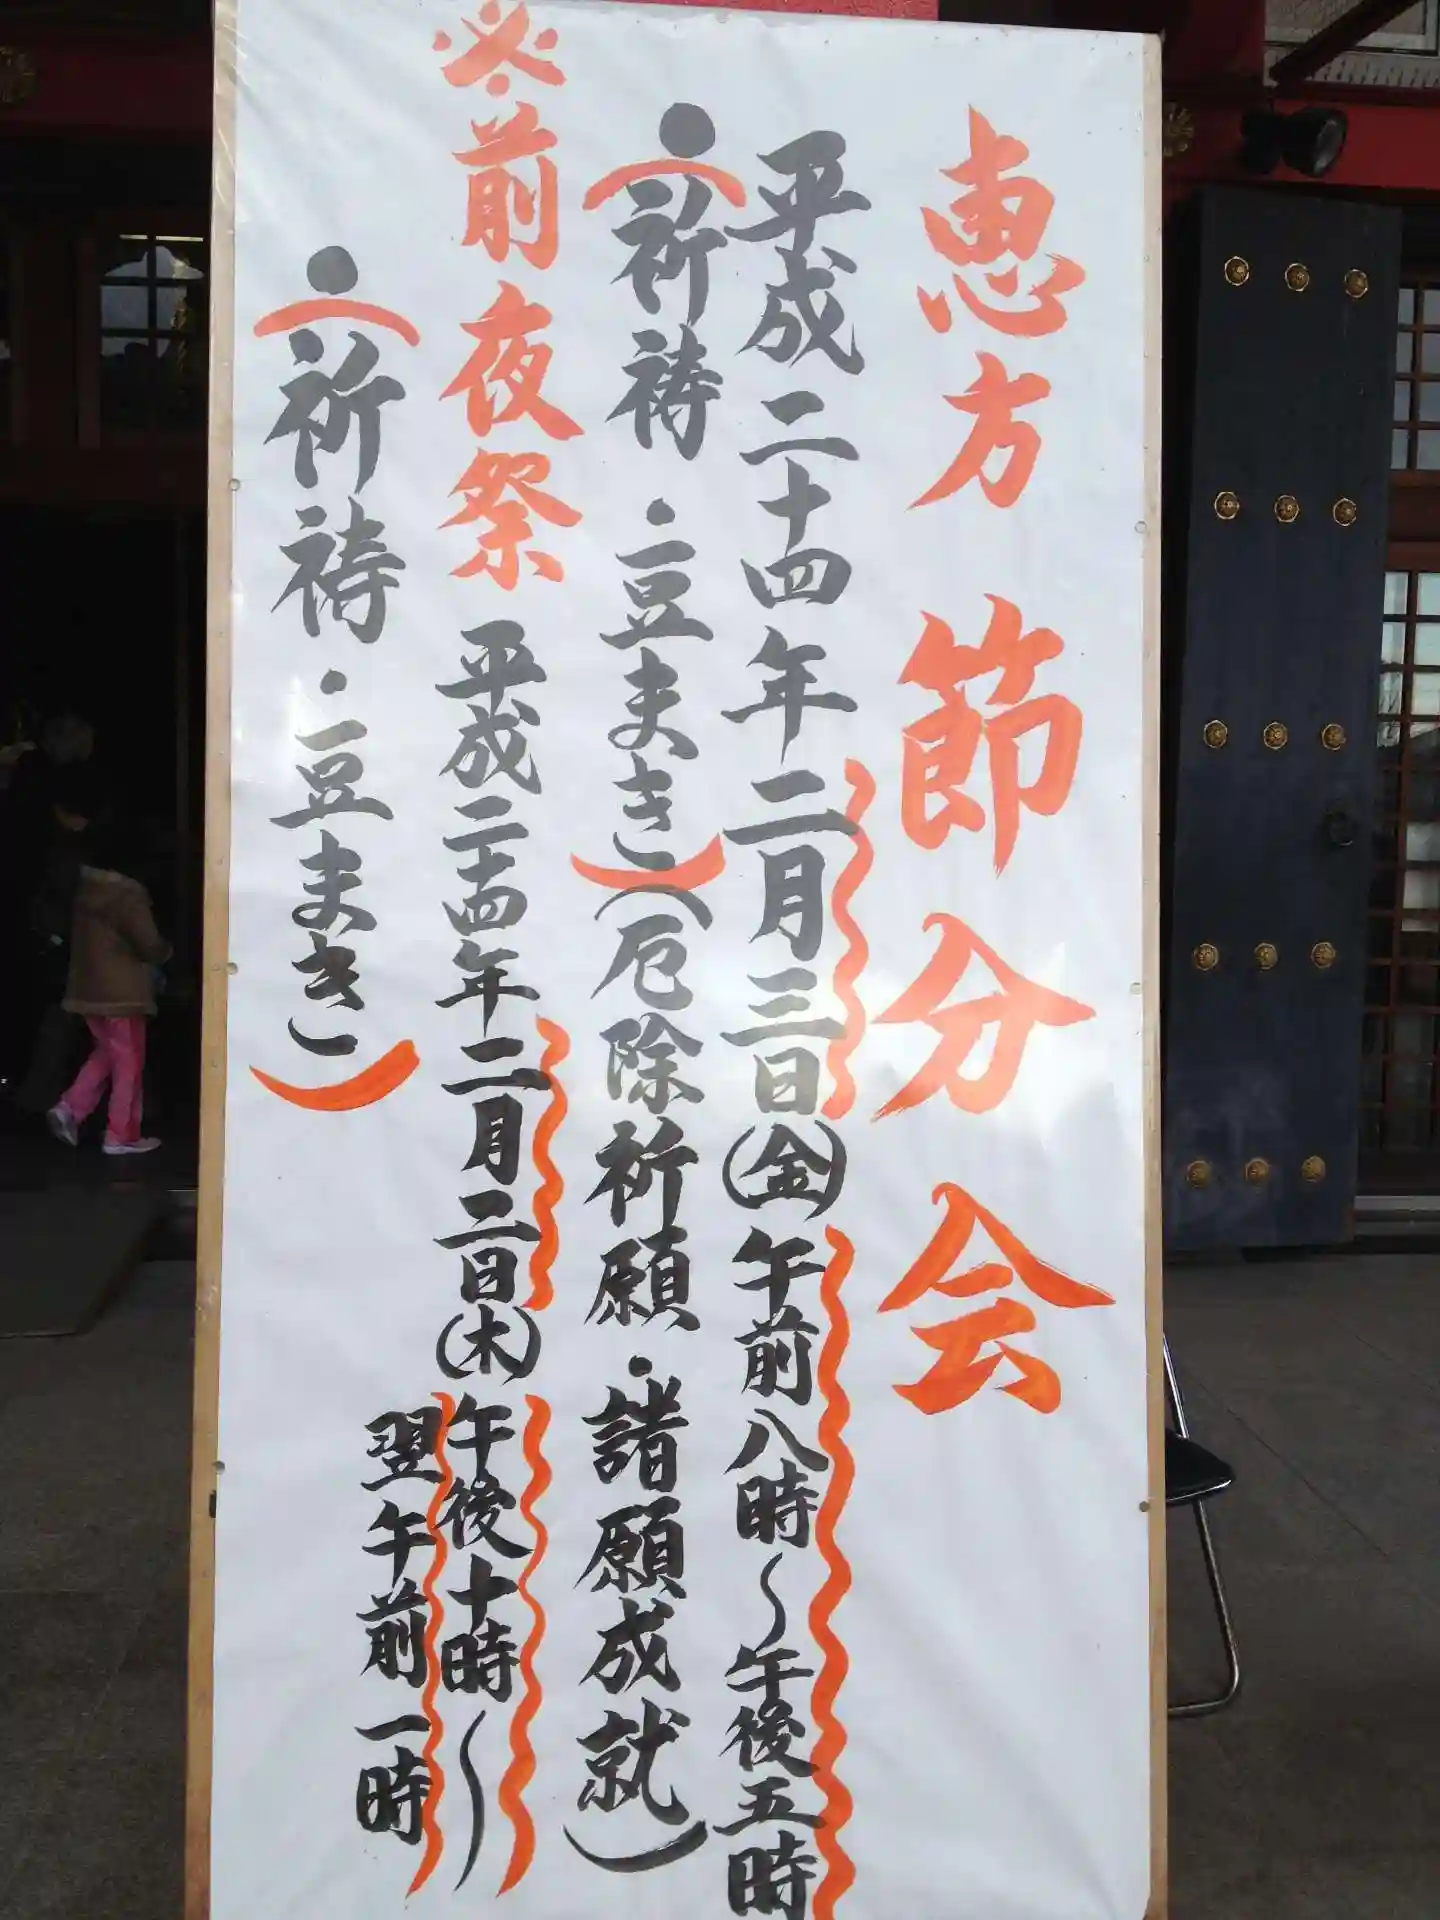 恵方 節分会
平成二十四年二月三日(金)午前八時～午後五時
●(祈祷・豆まき)(厄除祈願・諸願成就)
※前夜祭 平成二十四年二月二日(木)午後十時～
翌午前一時
●(祈祷・豆まき)